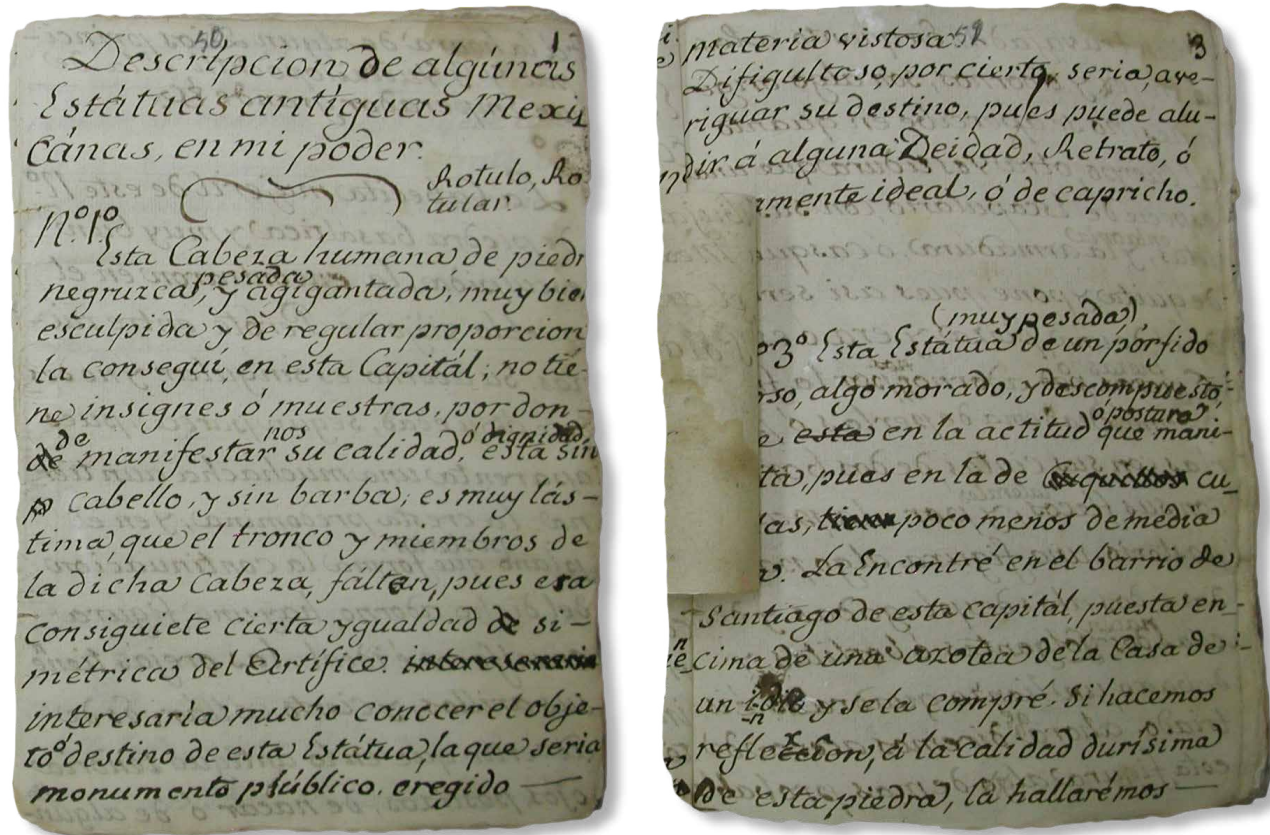 50 1
Descripcion de algúnas
Estátuas antíguas Mexi
cánas, en mi poder.
Rotulo, Ro
tular.
Nº. 1º
Esta Cabeza humana de piedr
pesada
negruzca, y agigantada, muy bien
esculpida y de regular proporcion
la conseguí, en esta Capitál; no tié-
ne insignes ó muestras, por don-
de nos ó dignidad,
de manifestar su calidad, está sin
cabello, y sin barba; es muy lás-
tima, que el tronco y miembros de
la dicha Cabeza, fálten, pues era
consiguiete cierta ygualdad de si-
métrica del Artífice.
interesaría mucho conocer el obje-
to ó destino de esta Estátua, la que seria
monumento públíco, eregido
materia vistosa 3
Difigultoso, por cierto, seria, ave-
riguar su destino, pues puede alu-
dir á alguna Deidad, Retrato, ó
amente ideal, ó de capricho.
(muy pesada)
3º Esta Estátua de un pórfido
so, algo morado, y descompuesto
ó postura
esta en la actitud que mani-
ta, pues en la de cu-
las, poco menos de media
La Encontré en el barrio de
Santiago de esta capitál, puesta en-
cima de una azotea de la Casa de
un y se la compré. Si hacemos
refleccion, á la calidad durísima
de esta piedra, la hallarémos